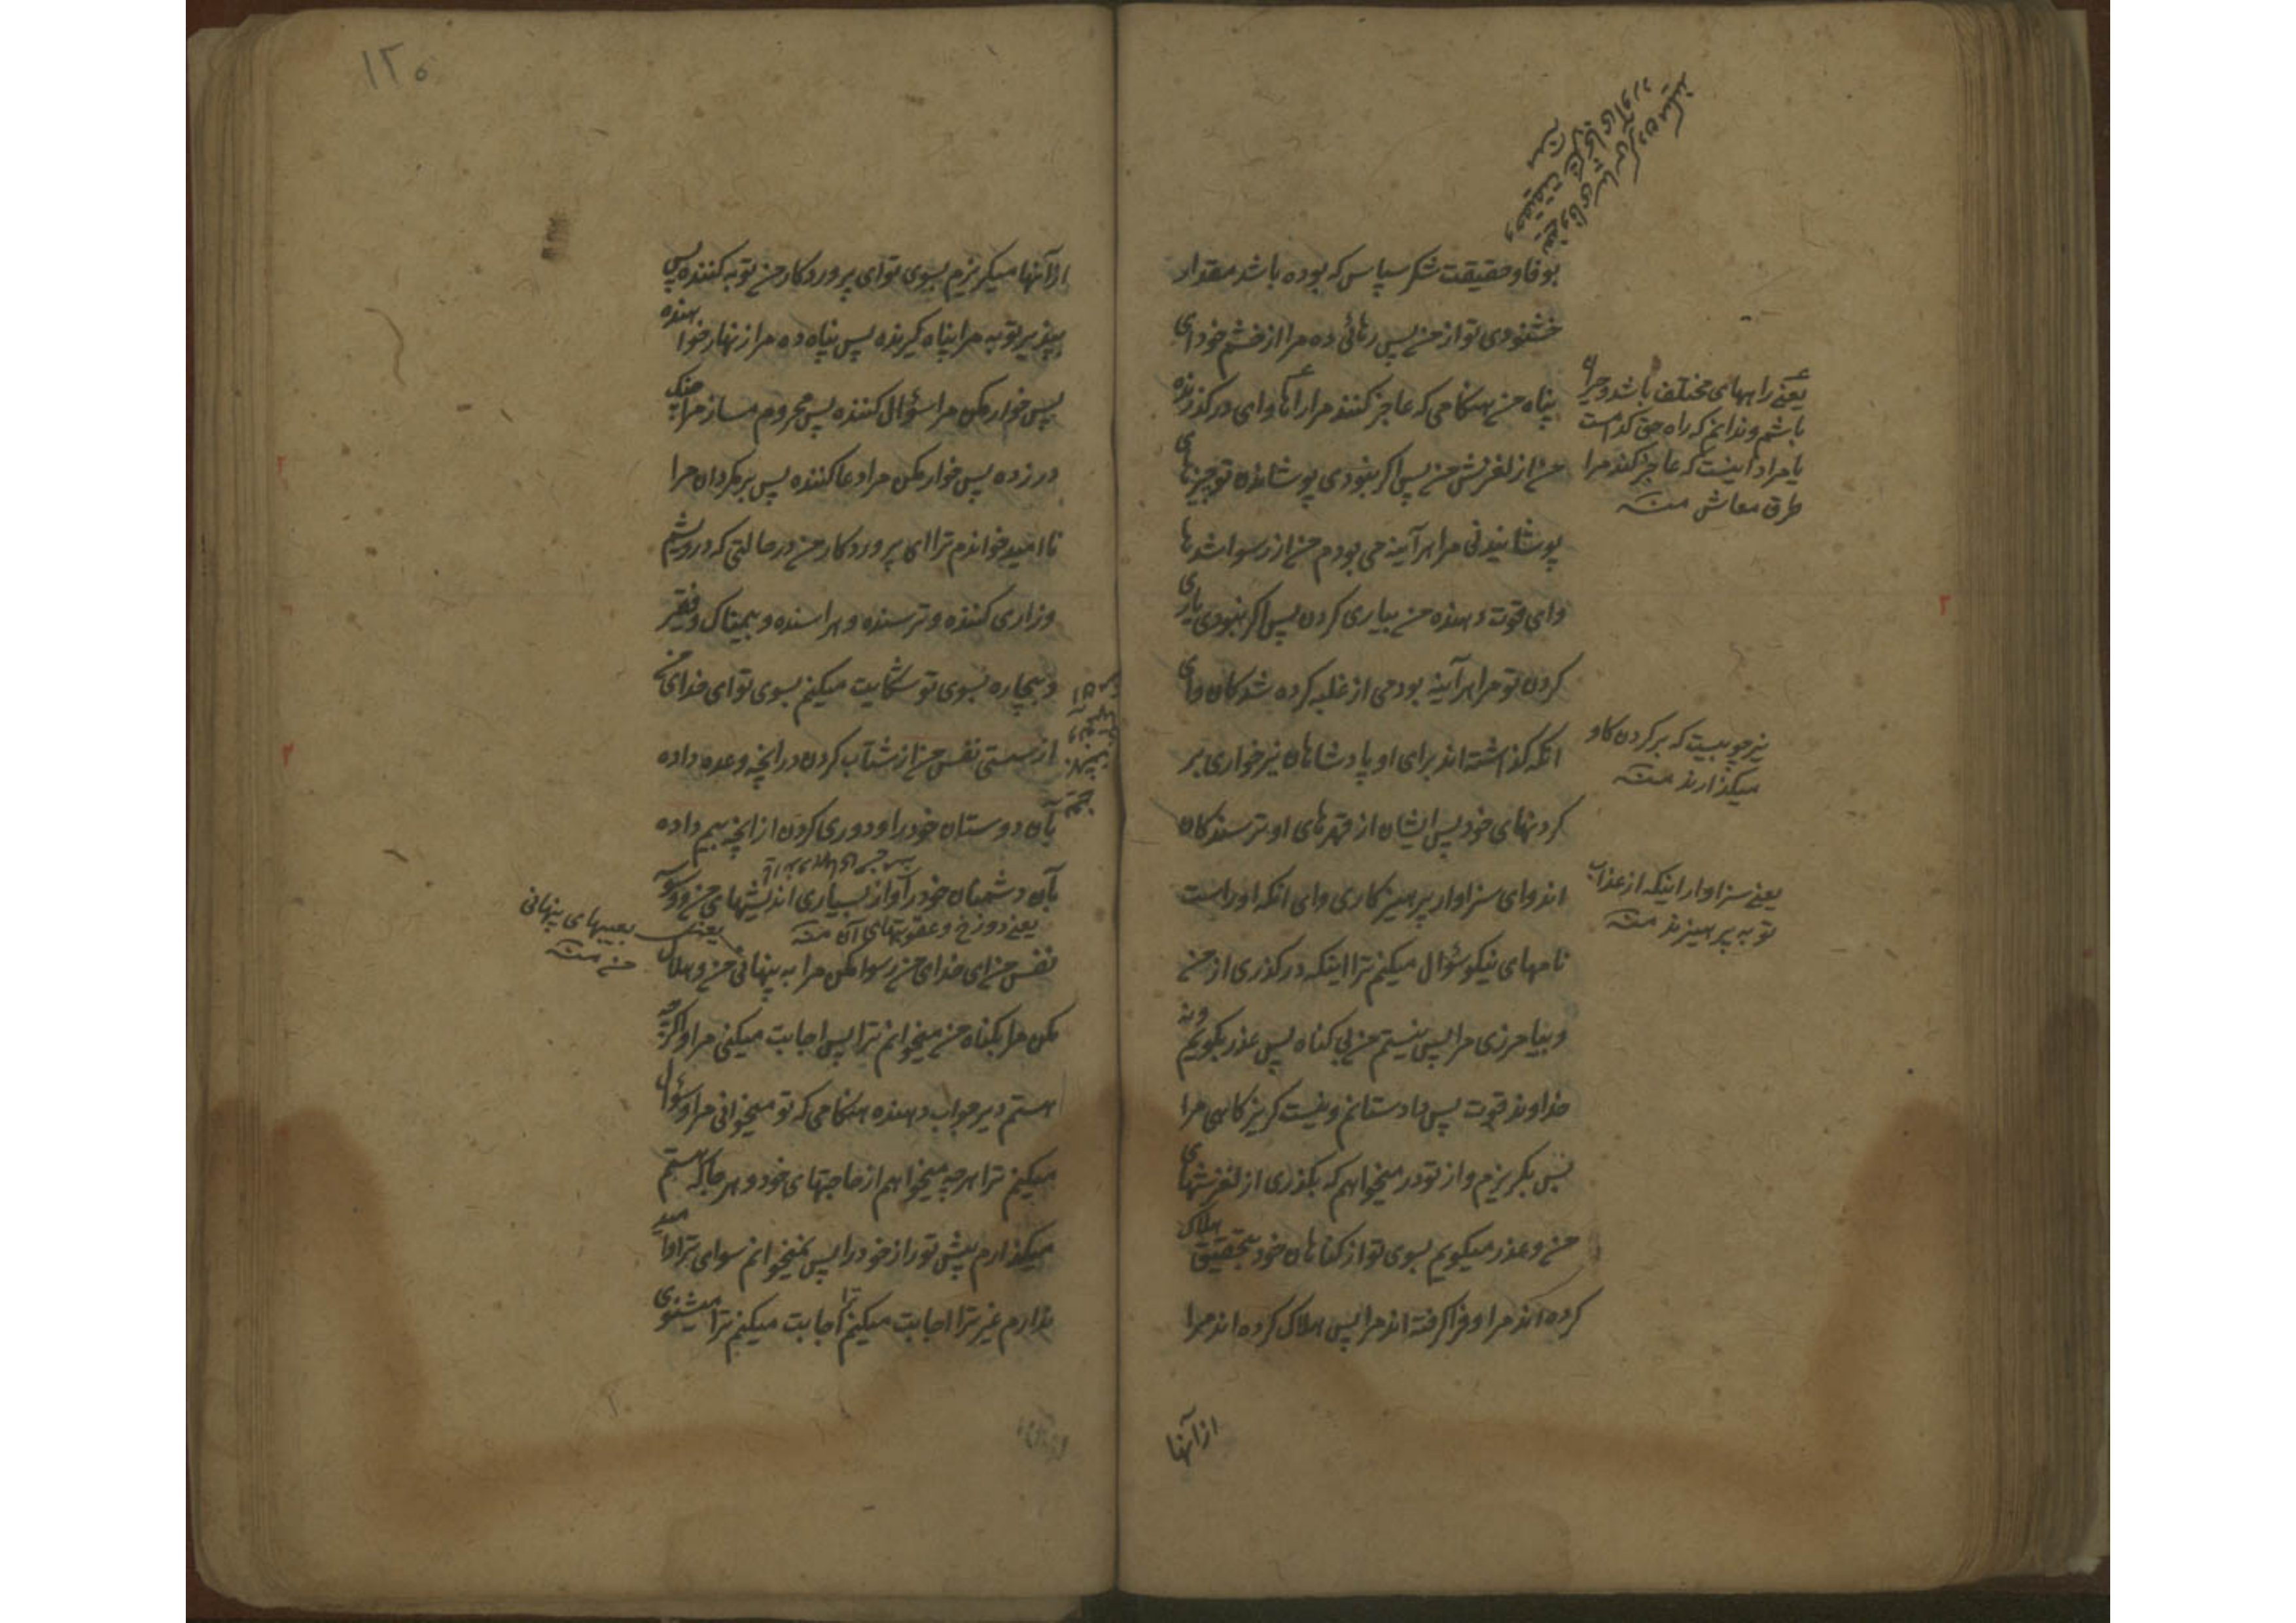 بوفا و حقیقت شکر سپاس که بوده باشد مقدار
خشنودی تو از من پس رهائی ده مرا از خشم خود ای
پناه من هنکامی که عاجز کنند مرا راهها و ای درکذرنده
من از لغزش من پس اکر نبودی پوشاندن تو چیزهای
پوشانیدنی مرا هرآینه می بودم من از رسوا شدها
و ای قوت دهنده من بیاری کردن پس اکر نبودی یاری
کردن تو مرا هرآینه بودمی از غلبه کرده شدکان و ای
انکه کذاشته اند برای او پادشاهان نیر خواری بر
کردنهای خود پس ایشان از قهرهای او ترسندکان
اند و ای سزاوار پرهیزکاری و ای انکه او راست
نامهای نیکو سؤال میکنم ترا اینکه درکذری از من
و بیامرزی مرا پس نیستم من بی کناه پس عذر بکویم و نه
خداوند قوت پس داد ستانم و نیست کریزکاهی مرا
پس بکریزم و از تو در میخواهم که بکذری از لغزشهای
من و عذر میکویم بسوی تو از کناهان خود بتحقیق هلاک
کرده اند مرا و فرا کرفته اند مرا پس هلاک کرده اند مرا
از آنها
یعنی راههای مختلف باشد و حیران
باشم و ندانم که راه حق کدامست
یا مراد اینست که عاجز کند مرا
طرق معاش منه
نیر چوبیست که بر کردن کاو
میکذارند منه
یعنی سزاوار اینکه از عذاب
تو به پرهیزند منه
۱۲۵
از آنها میکریزم بسوی تو ای پروردکار من توبه کننده پس
بپذیر توبه مرا پناه کیرنده پس پناه ده مرا زنهار خواهنده
پس خوار مکن مرا سؤال کننده پس محروم مساز مرا چنک
در زده پس خوار مکن مرا دعا کننده پس برمکردان مرا
ناامید خواندم ترا ای پروردکار من در حالتی که درویشم
و زاری کننده و ترسنده و هراسنده و بیمناک و فقیر
و بیچاره بسوی تو شکایت میکنم بسوی تو ای خدای من
از سستی نفس من از شتاب کردن در انچه وعده داده
بآن دوستان خود را و دوری کردن از انچه بیم داده
بآن دشمنان خود را و از بسیاری اندیشهای من و وسوسه
یعنی دوزخ و عقوبتهای آن منه
نفس من ای خدای من رسوا مکن مرا به پنهانی من و هلاک
یعنی بعیبهای پنهانی
من منه
مکن مرا بکناه من میخوانم ترا پس اجابت میکنی مرا و اکرچه
هستم دیر جواب دهنده هنکامی که تو میخوانی مرا و سؤال
میکنم ترا هر چه میخواهم از حاجتهای خود و هر جا که هستم
میکذارم پیش تو راز خود را پس نمیخوانم سوای ترا و امید
ندارم غیر ترا اجابت میکنم ترا اجابت میکنم ترا میشنوی